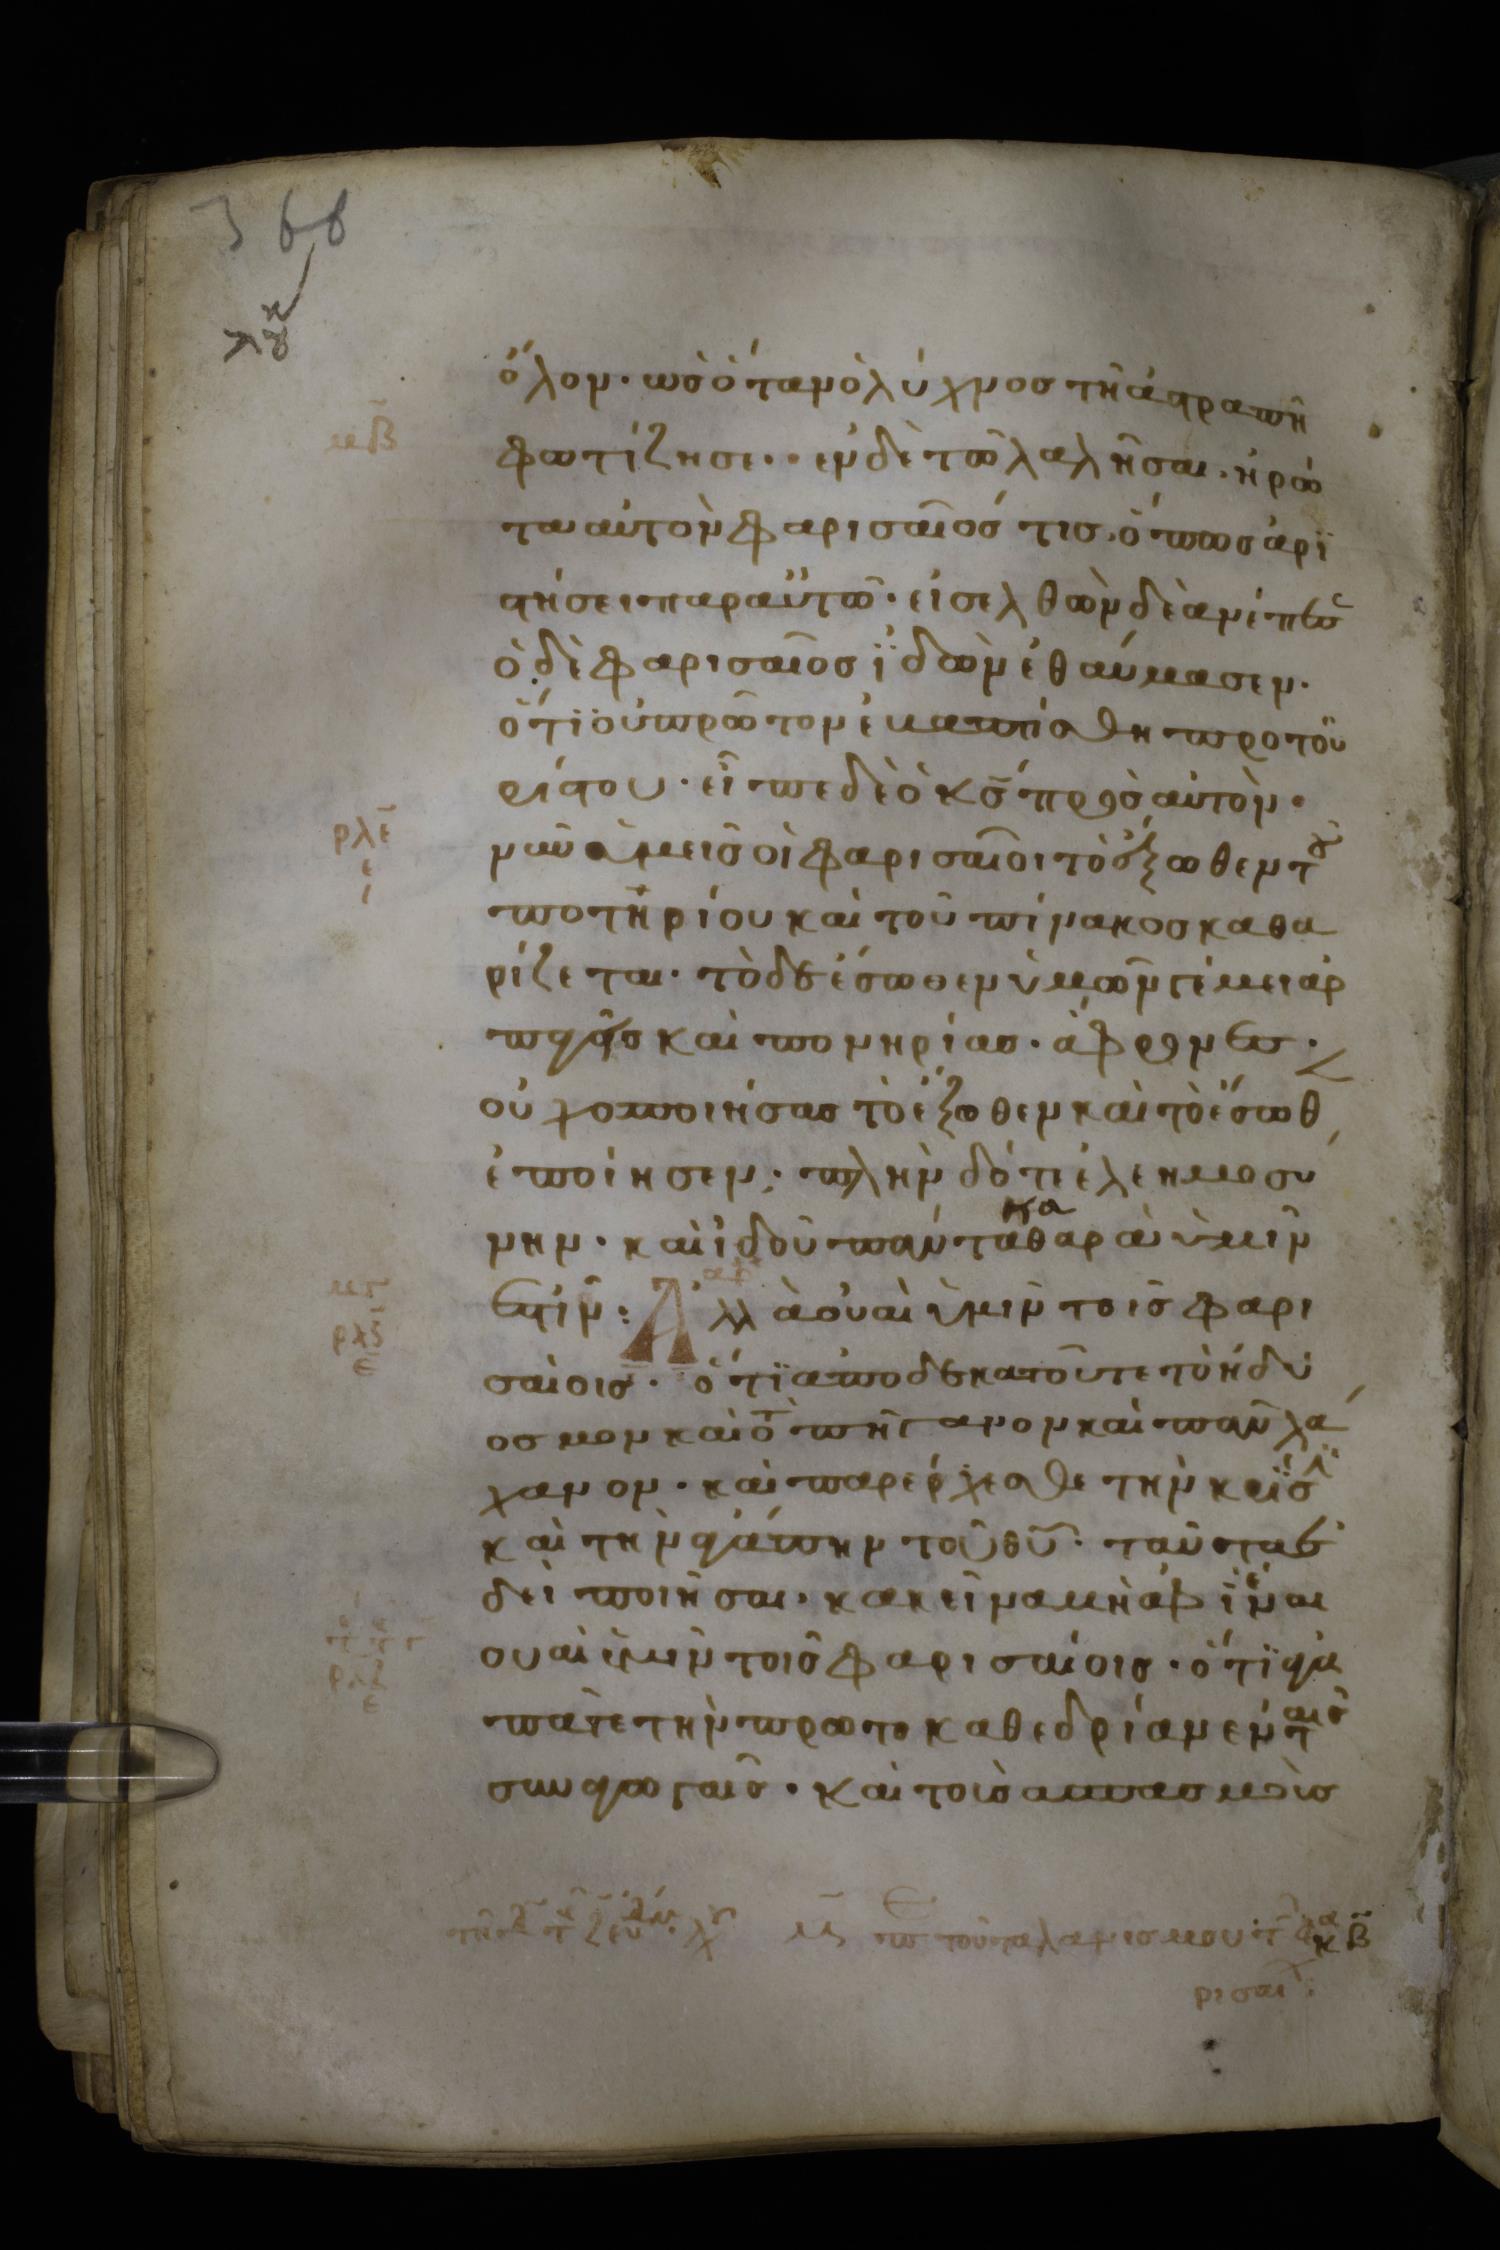 366
λου
ὅλον· ὡς ὅταν ὁ λύχνος τῆ ἀστραπῆ
μβ
φωτίζησε·· ἐν δὲ τῶ λαλῆσαι· ἠρώ
τα αὐτὸν φαρισαῖός τις· ὅπως ἀρι
στήσει παρ αὐτῶ· εἰσελθὼν δὲ ἀνέπεσ
ὁ δὲ φαρισαῖος ϊδὼν ἐθαύμασεν·
ὅτϊ οὐ πρῶτον ἐβαπτίσθη προ τοῦ
ρίστου· εἶπε δὲ ὁ κς πρὸς αὐτὸν·
ρλε
ε
νῦν ὑμεῖς οἱ φαρισαῖοι τὸ ἔξωθεν τοῦ
ποτηρίου καὶ τοῦ πίνακος καθα
ρίζεται· τὸ δὲ ἔσωθεν ὑμῶν γέμει ἁρ
παγῆς καὶ πονηρίας· ἄφρονες·
οὐχ ὁ ποιήσας τὸ ἔξωθεν καὶ τὸ ἔσωθ
ἐποίησεν; πλὴν δότε ἐλεημοσυ
νην· καὶ ἰδοῦ πάντα καθαρὰ ὑμῖν
ἐστίν: Ἀλλὰ οὐαὶ ὑμῖν τοῖς φαρι
ρλς
ε
σαίοις· ὅτϊ ἀποδεκατοῦτε τὸ ἡδύ
οσμον καὶ τὸ πήγανον καὶ πᾶν λά
χανον· καὶ παρέρχεσθε τὴν κρίσϊν
καὶ τὴν ἀγάπην τοῦ θυ· ταῦτα ἔ
δει ποιῆσαι· κακεῖνα μὴ ἀφϊέναι
οὐαὶ ὑμῖν τοῖς φαρισαίοις· ὅτϊ ἀγα
ρλζ
ε
πᾶτε τὴν πρωτοκαθεδρίαν ἐν ταῖς
συναγωγαῖς· καὶ τοὺς ἀσπασμοὺς
μϛ
τοῦ ταλανισμοῦ τ φα
ρισαι
κβ